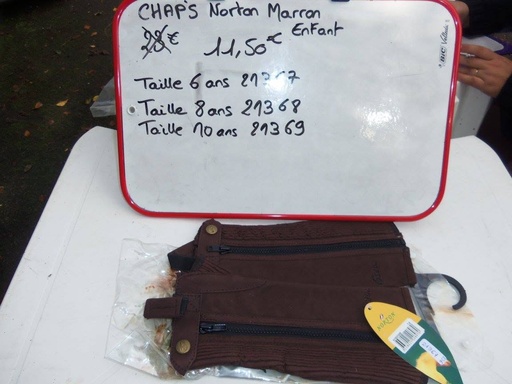 CHAP'S Norton Marron
Enfant
28€ 11,50€
Taille 6 ans 21367
Taille 8 ans 21368
Taille 10 ans 21369
NORTON